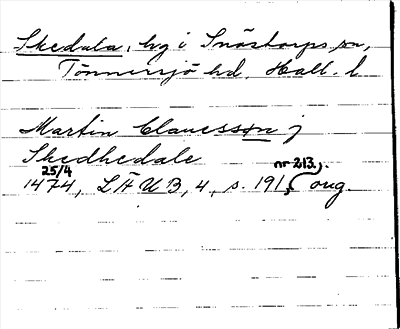 Skedala, by i Snöstorps sn,
Tönnersjö hd, Hall. l
Martin Clauesson j
Skedhedale
25/4 1474, LÄUB, 4, s. 191, nr 213. orig.